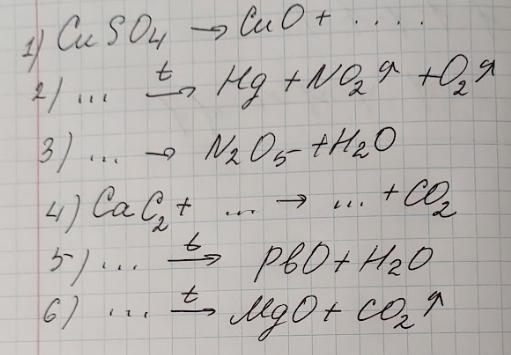 1) CuSO4 → CuO + ....
2) ... t→ Hg + NO2↑ + O2↑
3) ... → N2O5 + H2O
4) CaC2 + ... → ... + CO2
5) ... t→ PbO + H2O
6) ... t→ MgO + CO2↑